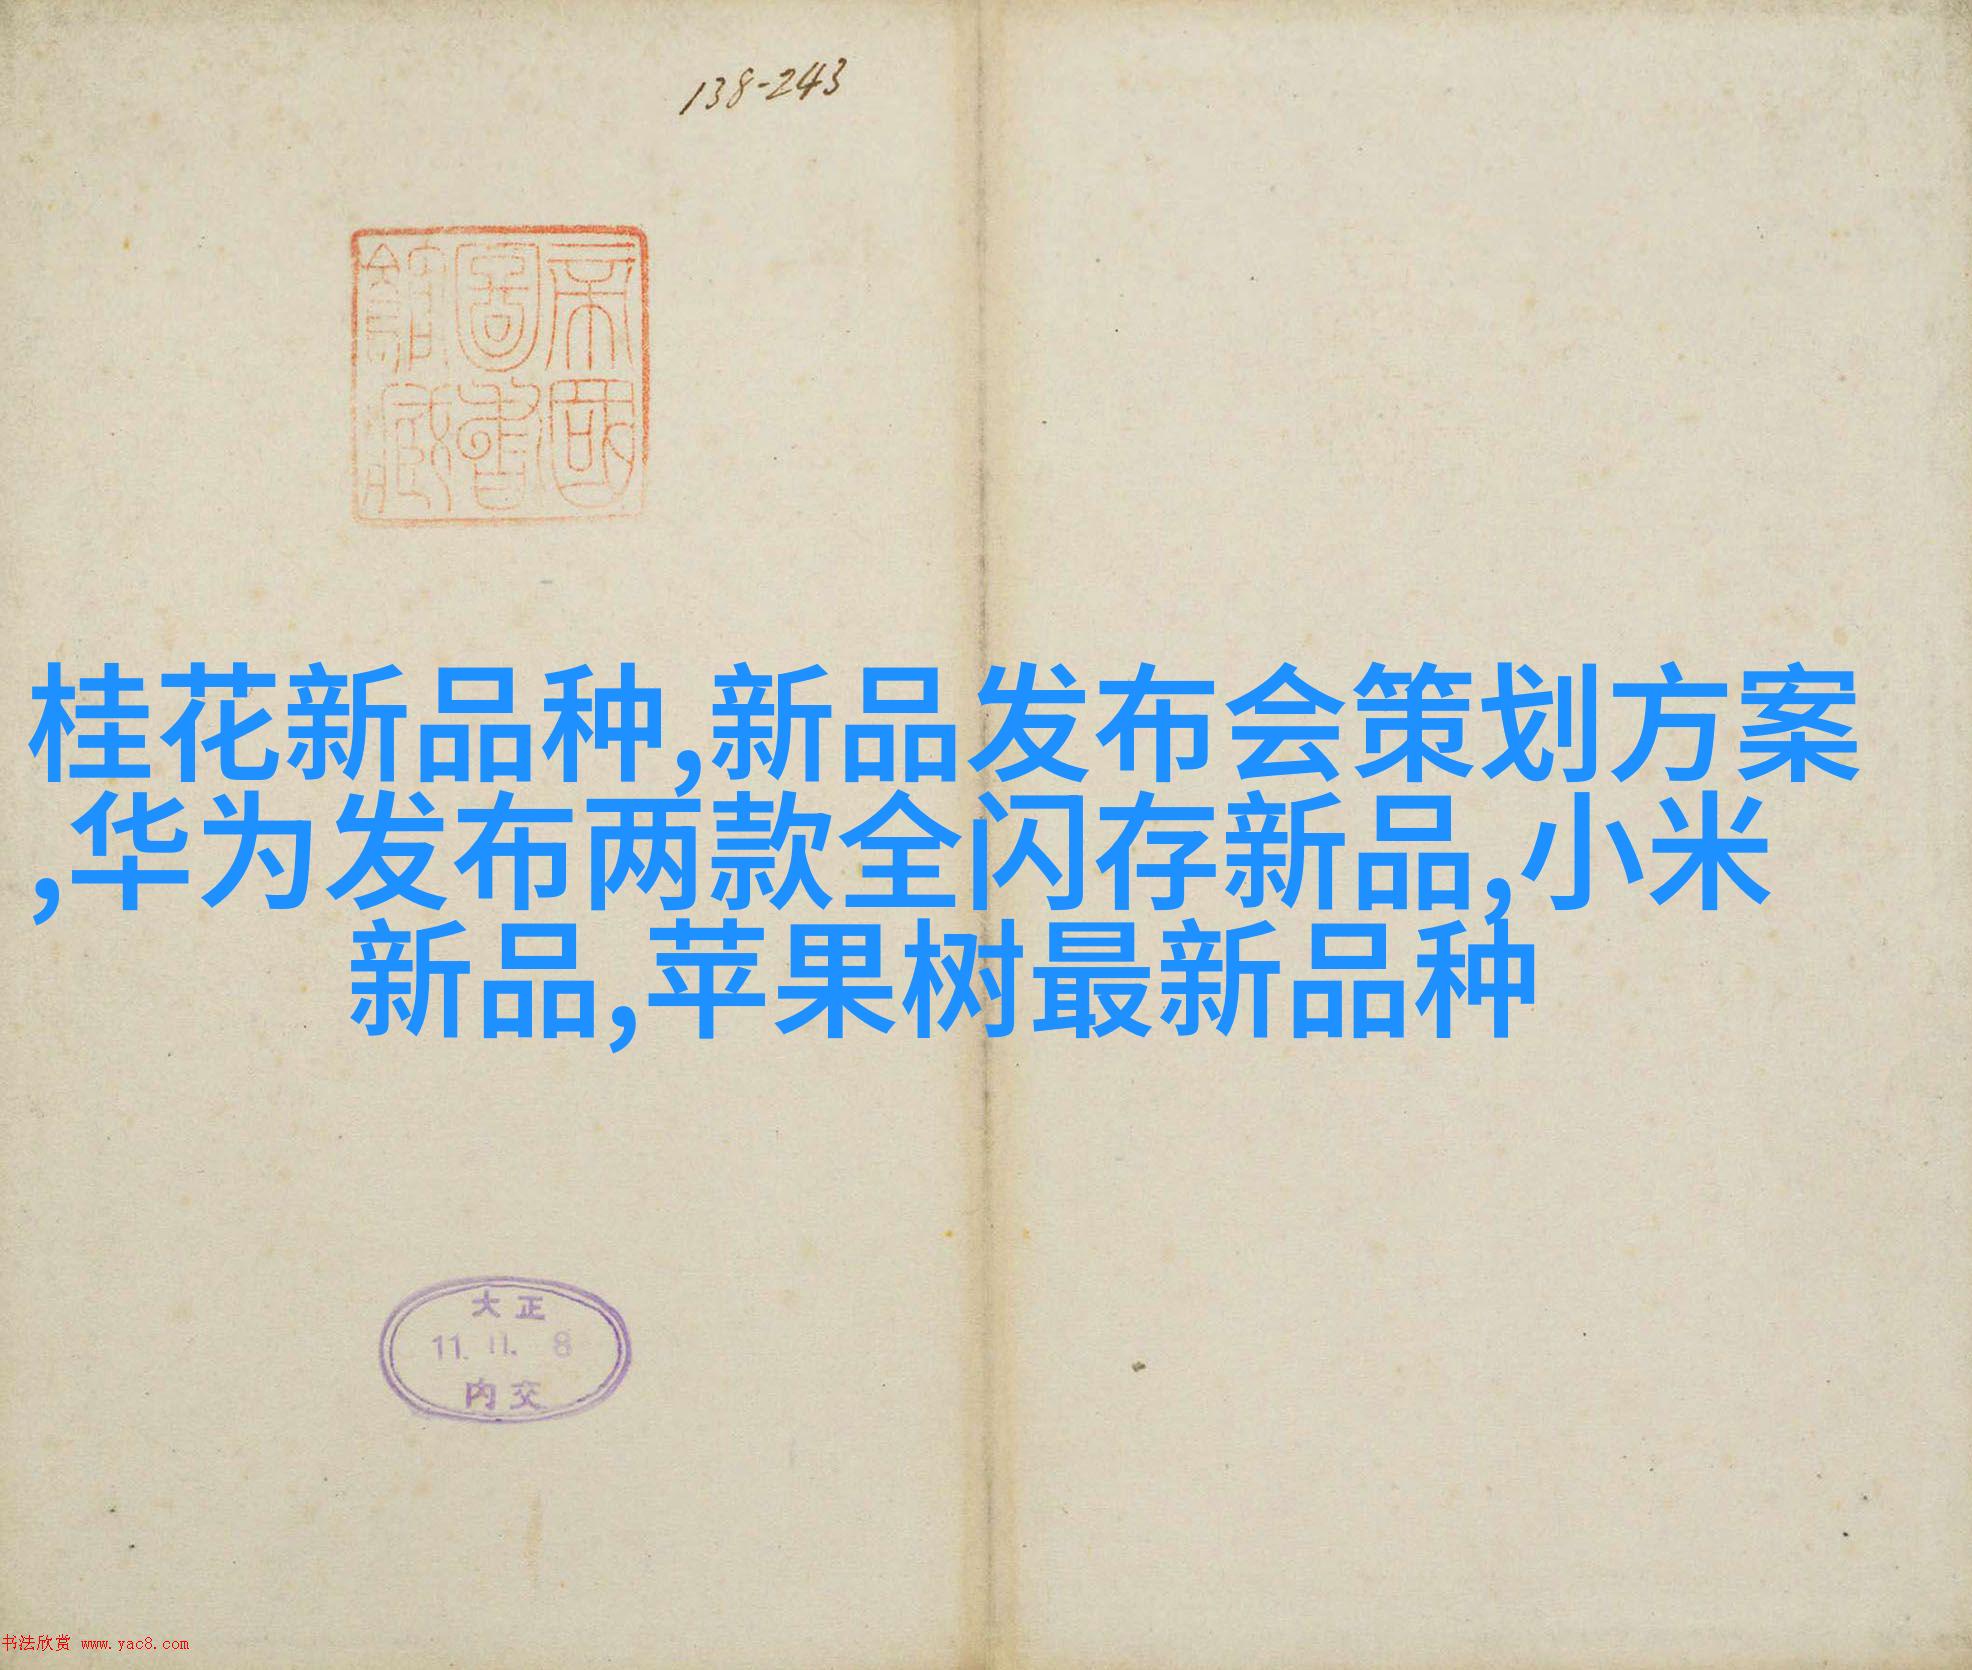 138-243
帝國
圖書
館藏
桂花新品种,新品发布会策划方案
,华为发布两款全闪存新品,小米
新品,苹果树最新品种
大正
11.11.8
内交
书法欣赏 www.yac8.com